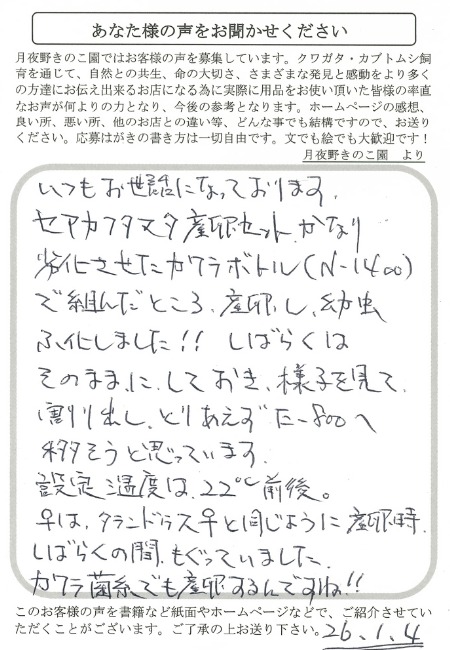 あなた様の声をお聞かせください
月夜野きのこ園ではお客様の声を募集しています。クワガタ・カブトムシ飼
育を通じて、自然との共生、命の大切さ、さまざまな発見と感動をより多く
の方達にお伝え出来るお店になる為に実際に用品をお使い頂いた皆様の率直
なお声が何よりの力となり、今後の参考となります。ホームページの感想、
良い所、悪い所、他のお店との違い等、どんな事でも結構ですので、お送り
ください。応募はがきの書き方は一切自由です。文でも絵でも大歓迎です！
月夜野きのこ園　より
いつもお世話になっております。
セアカフタマタ産卵セット、かなり
劣化させたカワラボトル(N-1400)
で組んだところ、産卵し、幼虫
ふ化しました!! しばらくは
そのまま、に、しておき、様子を見て、
割り出し、とりあえず E-800へ
移そうと思っています。
設定温度は、22℃前後。
♀は、タランドゥス♀と同じように産卵時、
しばらくの間、もぐっていました。
カワラ菌糸でも産卵するんですね!!
このお客様の声を書籍など紙面やホームページなどで、ご紹介させてい
ただくことがございます。ご了承の上お送り下さい。26.1.4